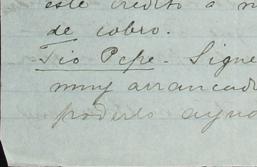 este crédito a m
de cobro.
Tio Pepe. Sigue
muy arrancado
poderlo ayud